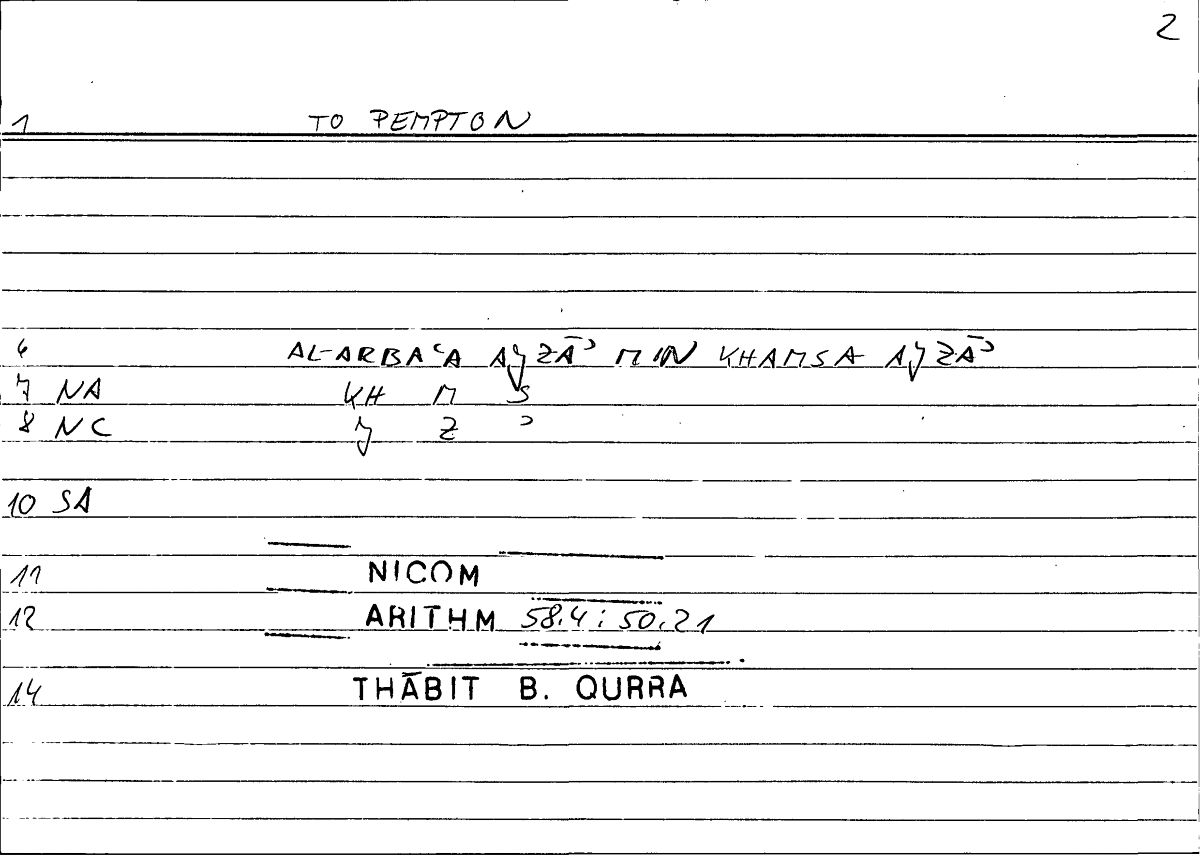 2
1 TO PEMPTON
6 AL-ARBAʿA AJZĀʾ MIN KHAMSA AJZĀʾ
7 NA KH M S
8 NC J Z ʾ
10 SA
11 NICOM
12 ARITHM 58.4 : 50.21
14 THĀBIT B. QURRA